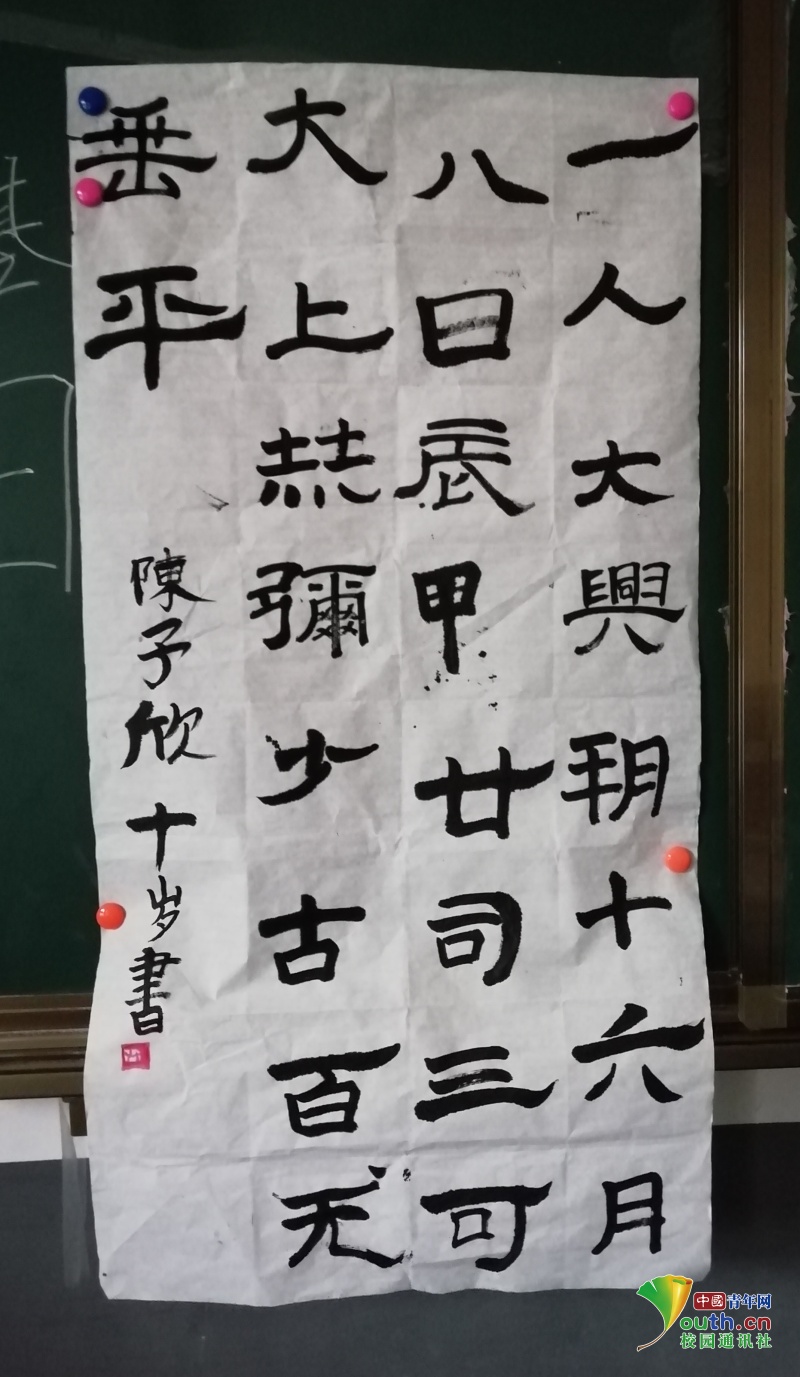 一人大興朔十六月
八日辰甲廿司三可
大上喆彌少古百无
垂平
陳子欣十岁書
中國青年网
outh.cn
校园通讯社